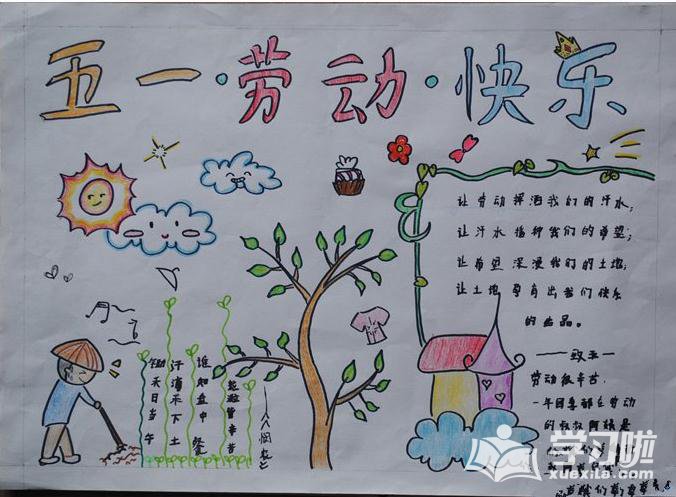 五一·劳动·快乐
让劳动挥洒我们的汗水;
让汗水播种我们的希望;
让希望深浸我们的土地;
让土地孕育出我们快乐
的出品。
——致五一
劳动很辛苦.
一年四季都在劳动
的叔叔阿姨是
锄禾日当午
汗滴禾下土
谁知盘中餐
粒粒皆辛苦
——《悯农》
学习啦
www.xuexila.com